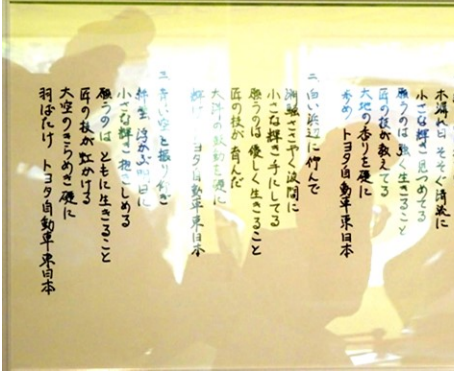 木漏れ日 そそぐ清流に
小さな輝き 見つめてる
願うのは 強く生きること
匠の技が教えてる
大地の香りを礎に
トヨタ自動車東日本
二 白い浜辺に佇んで
潮騒ささやく波間に
小さな輝き手にしてる
願うのは優しく生きること
匠の技が育んだ
大洋の鼓動を礎に
輝け トヨタ自動車東日本
三 青い空と振り仰ぎ
浮かぶ
小さな輝き 抱きしめる
願うのは ともに生きること
匠の技が虹かける
大空のきらめき 礎に
羽ばたけ トヨタ自動車東日本